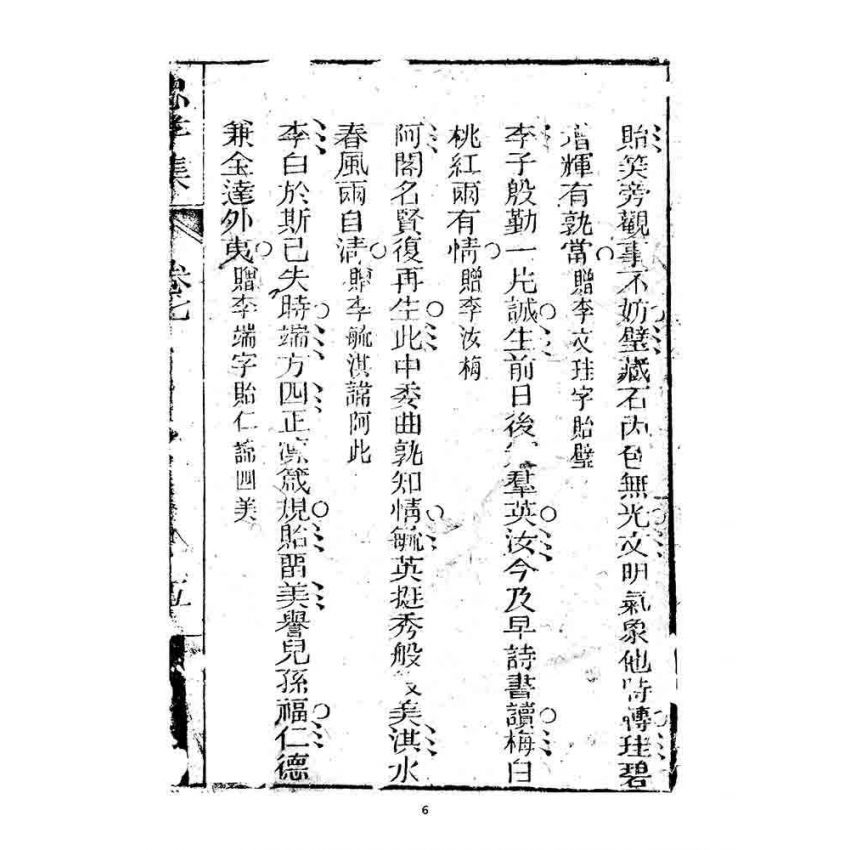 貽笑旁觀事不妨璧藏石內色無光文明氣象他時傳珪碧
增輝有孰當贈李文珪字貽璧
李子殷勤一片誠生前日後羣英汝今及早詩書讀梅白
桃紅雨有情贈李汝梅
阿閣名賢復再生此中委曲孰知情毓英挺秀般般美淇水
春風雨自清贈李毓淇諱阿此
李白於斯已失時端方四正凛箴規貽畱美譽兒孫福仁德
兼全達外夷贈李端字貽仁諱四美
集 卷七
五
6